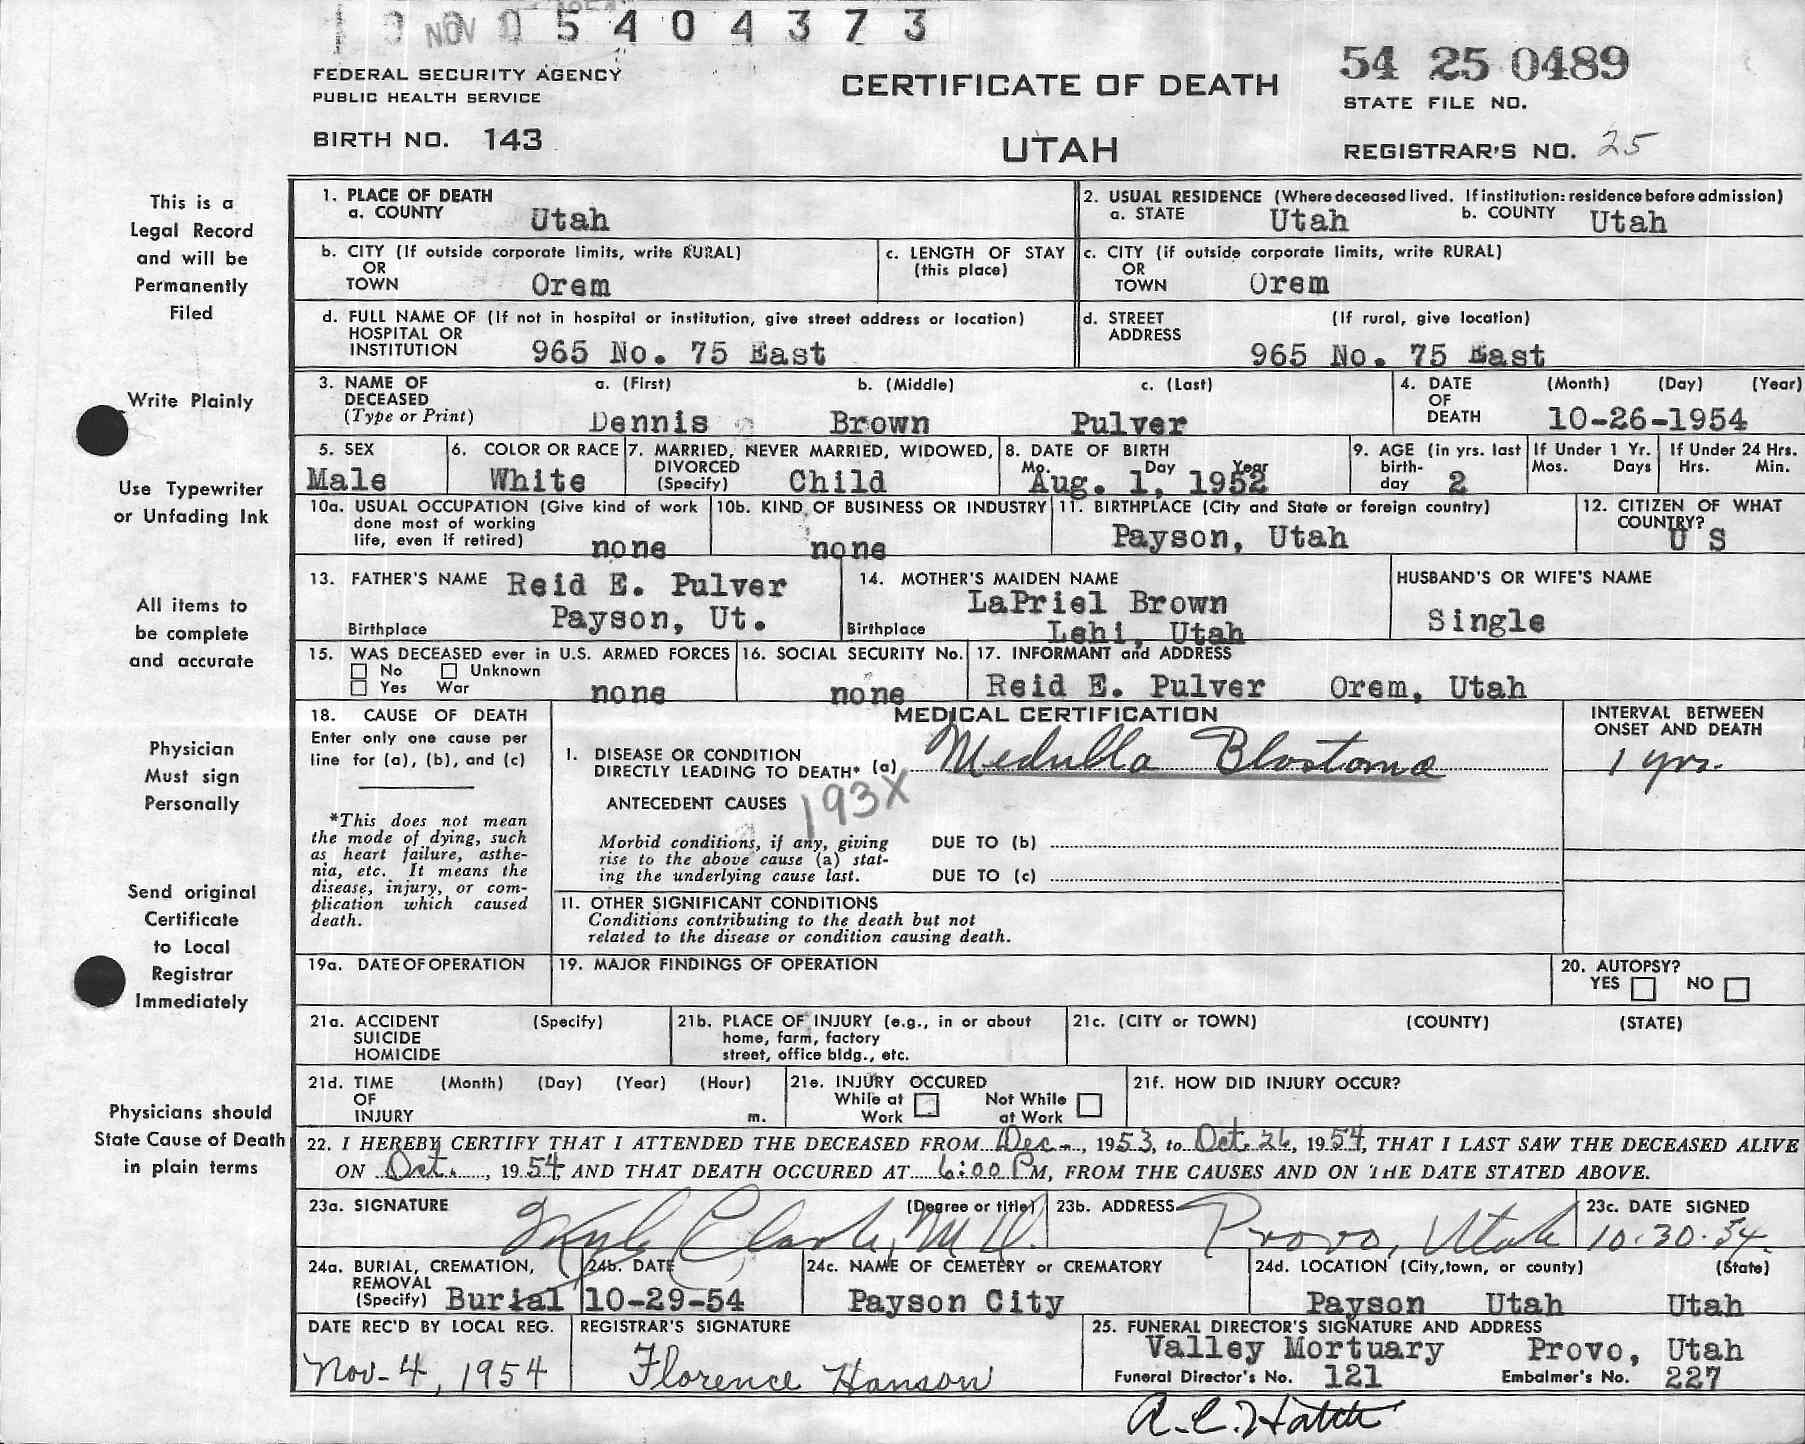 NOV 0 5 4 0 4 3 7 3
54 25 0489
FEDERAL SECURITY AGENCY
PUBLIC HEALTH SERVICE
CERTIFICATE OF DEATH
STATE FILE NO.
BIRTH NO. 143
UTAH
REGISTRAR'S NO. 25
This is a
Legal Record
and will be
Permanently
Filed
Write Plainly
Use Typewriter
or Unfading Ink
All items to
be complete
and accurate
Physician
Must sign
Personally
Send original
Certificate
to Local
Registrar
Immediately
Physicians should
State Cause of Death
in plain terms
1. PLACE OF DEATH
a. COUNTY Utah
2. USUAL RESIDENCE (Where deceased lived. If institution: residence before admission)
a. STATE Utah b. COUNTY Utah
b. CITY (If outside corporate limits, write RURAL)
OR
TOWN Orem
c. LENGTH OF STAY
(this place)
c. CITY (if outside corporate limits, write RURAL)
OR
TOWN Orem
d. FULL NAME OF (If not in hospital or institution, give street address or location)
HOSPITAL OR
INSTITUTION 965 No. 75 East
d. STREET (If rural, give location)
ADDRESS
965 No. 75 East
3. NAME OF a. (First) b. (Middle) c. (Last)
DECEASED
(Type or Print) Dennis Brown Pulver
4. DATE (Month) (Day) (Year)
OF
DEATH 10-26-1954
5. SEX
Male
6. COLOR OR RACE
White
7. MARRIED, NEVER MARRIED, WIDOWED,
DIVORCED
(Specify) Child
8. DATE OF BIRTH
Mo. Day Year
Aug. 1, 1952
9. AGE (in yrs. last
birth-
day 2
If Under 1 Yr.
Mos. Days
If Under 24 Hrs.
Hrs. Min.
10a. USUAL OCCUPATION (Give kind of work
done most of working
life, even if retired) none
10b. KIND OF BUSINESS OR INDUSTRY
none
11. BIRTHPLACE (City and State or foreign country)
Payson, Utah
12. CITIZEN OF WHAT
COUNTRY?
U S
13. FATHER'S NAME Reid E. Pulver
Payson, Ut.
Birthplace
14. MOTHER'S MAIDEN NAME
LaPriel Brown
Birthplace Lehi, Utah
HUSBAND'S OR WIFE'S NAME
Single
15. WAS DECEASED ever in U.S. ARMED FORCES
No Unknown
Yes War none
16. SOCIAL SECURITY No.
none
17. INFORMANT and ADDRESS
Reid E. Pulver Orem, Utah
18. CAUSE OF DEATH
Enter only one cause per
line for (a), (b), and (c)
*This does not mean
the mode of dying, such
as heart failure, asthe-
nia, etc. It means the
disease, injury, or com-
plication which caused
death.
MEDICAL CERTIFICATION
I. DISEASE OR CONDITION
DIRECTLY LEADING TO DEATH* (a) Medulla Blastoma
ANTECEDENT CAUSES 193X
Morbid conditions, if any, giving
rise to the above cause (a) stat-
ing the underlying cause last.
DUE TO (b)
DUE TO (c)
11. OTHER SIGNIFICANT CONDITIONS
Conditions contributing to the death but not
related to the disease or condition causing death.
INTERVAL BETWEEN
ONSET AND DEATH
1 yr.
19a. DATE OF OPERATION
19. MAJOR FINDINGS OF OPERATION
20. AUTOPSY?
YES NO
21a. ACCIDENT (Specify)
SUICIDE
HOMICIDE
21b. PLACE OF INJURY (e.g., in or about
home, farm, factory
street, office bldg., etc.
21c. (CITY or TOWN) (COUNTY) (STATE)
21d. TIME (Month) (Day) (Year) (Hour)
OF
INJURY m.
21e. INJURY OCCURED
While at Not While
Work at Work
21f. HOW DID INJURY OCCUR?
22. I HEREBY CERTIFY THAT I ATTENDED THE DECEASED FROM Dec., 1953, to Oct. 26, 1954, THAT I LAST SAW THE DECEASED ALIVE
ON Oct., 1954, AND THAT DEATH OCCURED AT 6:00 PM, FROM THE CAUSES AND ON THE DATE STATED ABOVE.
23a. SIGNATURE (Degree or title)
Clark, M D.
23b. ADDRESS
Provo, Utah
23c. DATE SIGNED
10-30-54.
24a. BURIAL, CREMATION,
REMOVAL
(Specify) Burial
24b. DATE
10-29-54
24c. NAME OF CEMETERY or CREMATORY
Payson City
24d. LOCATION (City, town, or county) (State)
Payson Utah Utah
DATE REC'D BY LOCAL REG.
Nov-4, 1954
REGISTRAR'S SIGNATURE
Florence Hanson
25. FUNERAL DIRECTOR'S SIGNATURE AND ADDRESS
Valley Mortuary Provo, Utah
Funeral Director's No. 121 Embalmer's No. 227